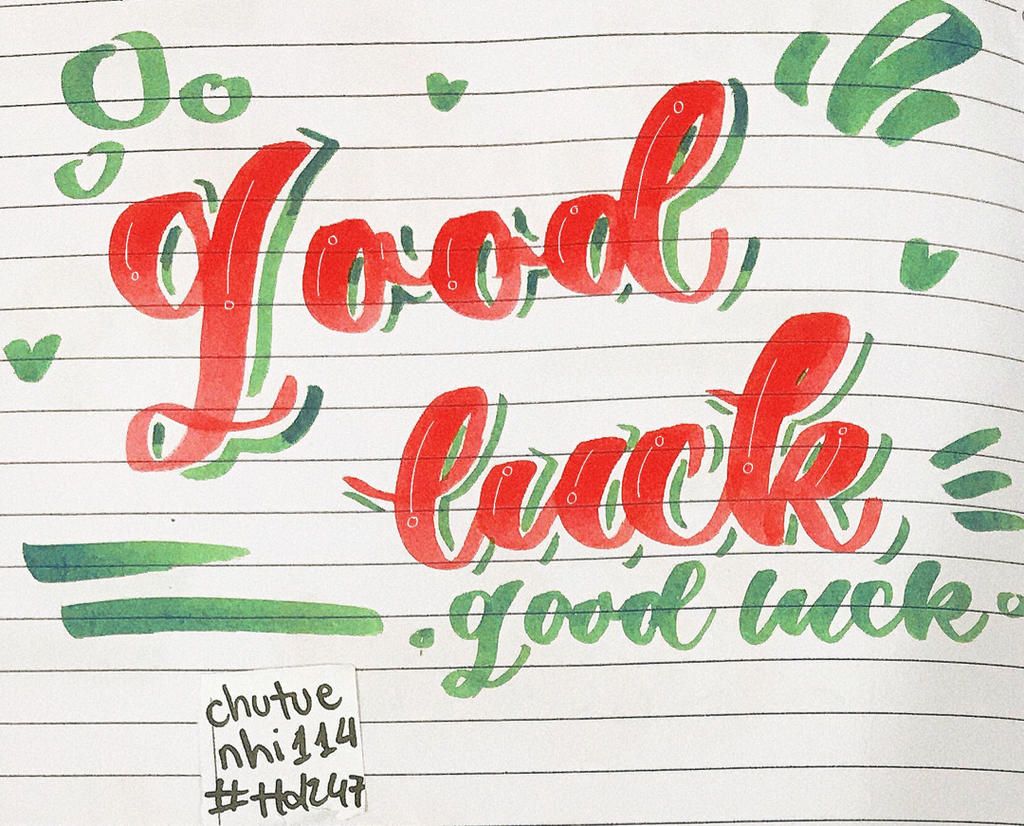 good
luck
good luck
chutue
nhi114
#Hd247